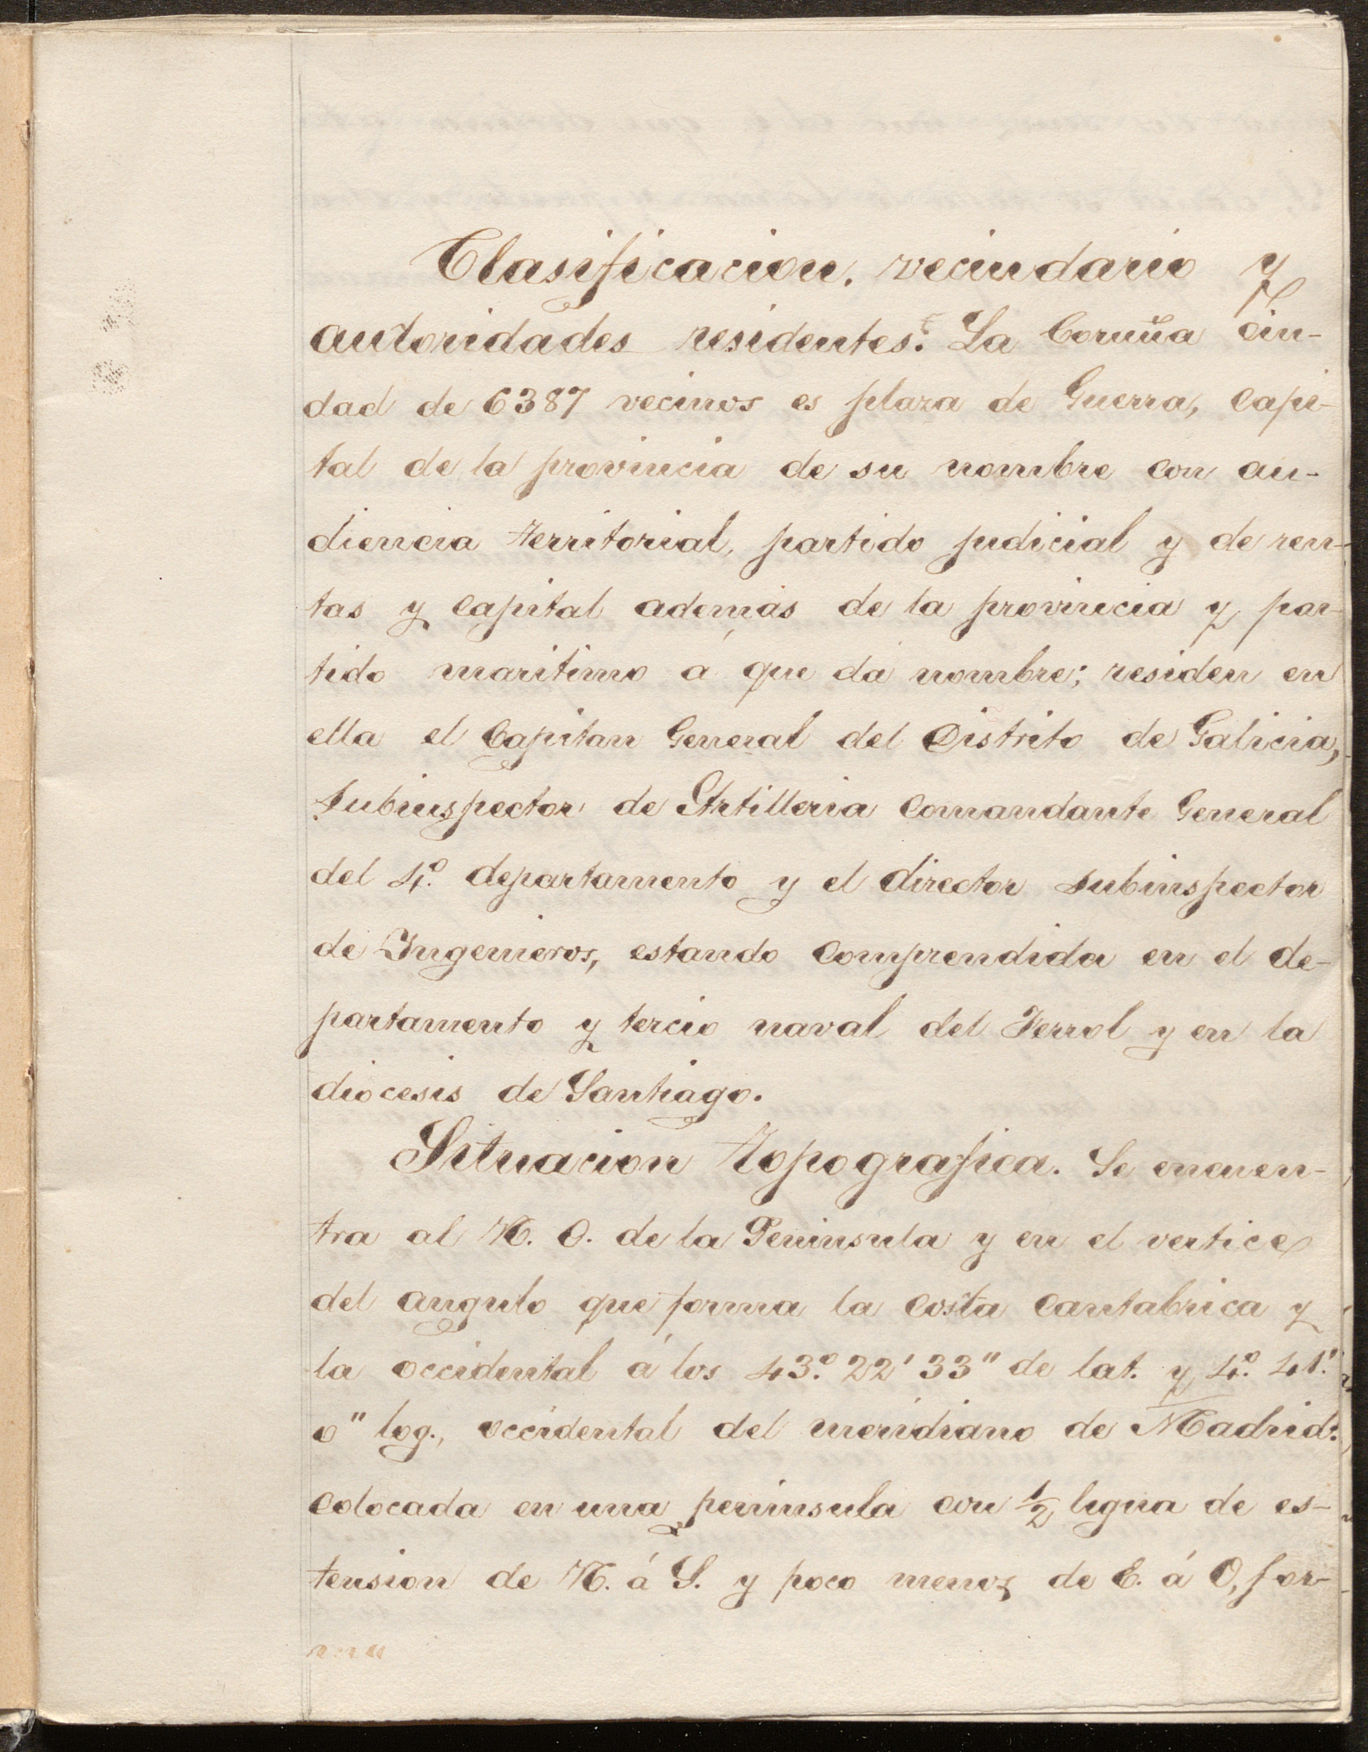 Clasificacion, vecindario y
autoridades residentes. La Coruña ciu-
dad de 6387 vecinos es plaza de Guerra, Capi-
tal de la provincia de su nombre con au-
diencia territorial, partido judicial y de ren-
tas y capital además de la provincia y par-
tido maritimo á que dá nombre; residen en
ella el Capitan General del Distrito de Galicia,
Subinspector de Artilleria Comandante General
del 4.º departamento y el director Subinspector
de Ingenieros, estando comprendida en el de-
partamento y tercio naval del Ferrol y en la
diocesis de Santiago.
Situacion topografica. Se encuen-
tra al N. O. de la Peninsula y en el vertice
del angulo que forma la costa cantabrica y
la occidental á los 43.º 22' 33" de lat. y 4.º 41'.
0" log., occidental del meridiano de Madrid:
colocada en una peninsula con ½ legua de es-
tension de N. á S. y poco menos de E. á O, for-